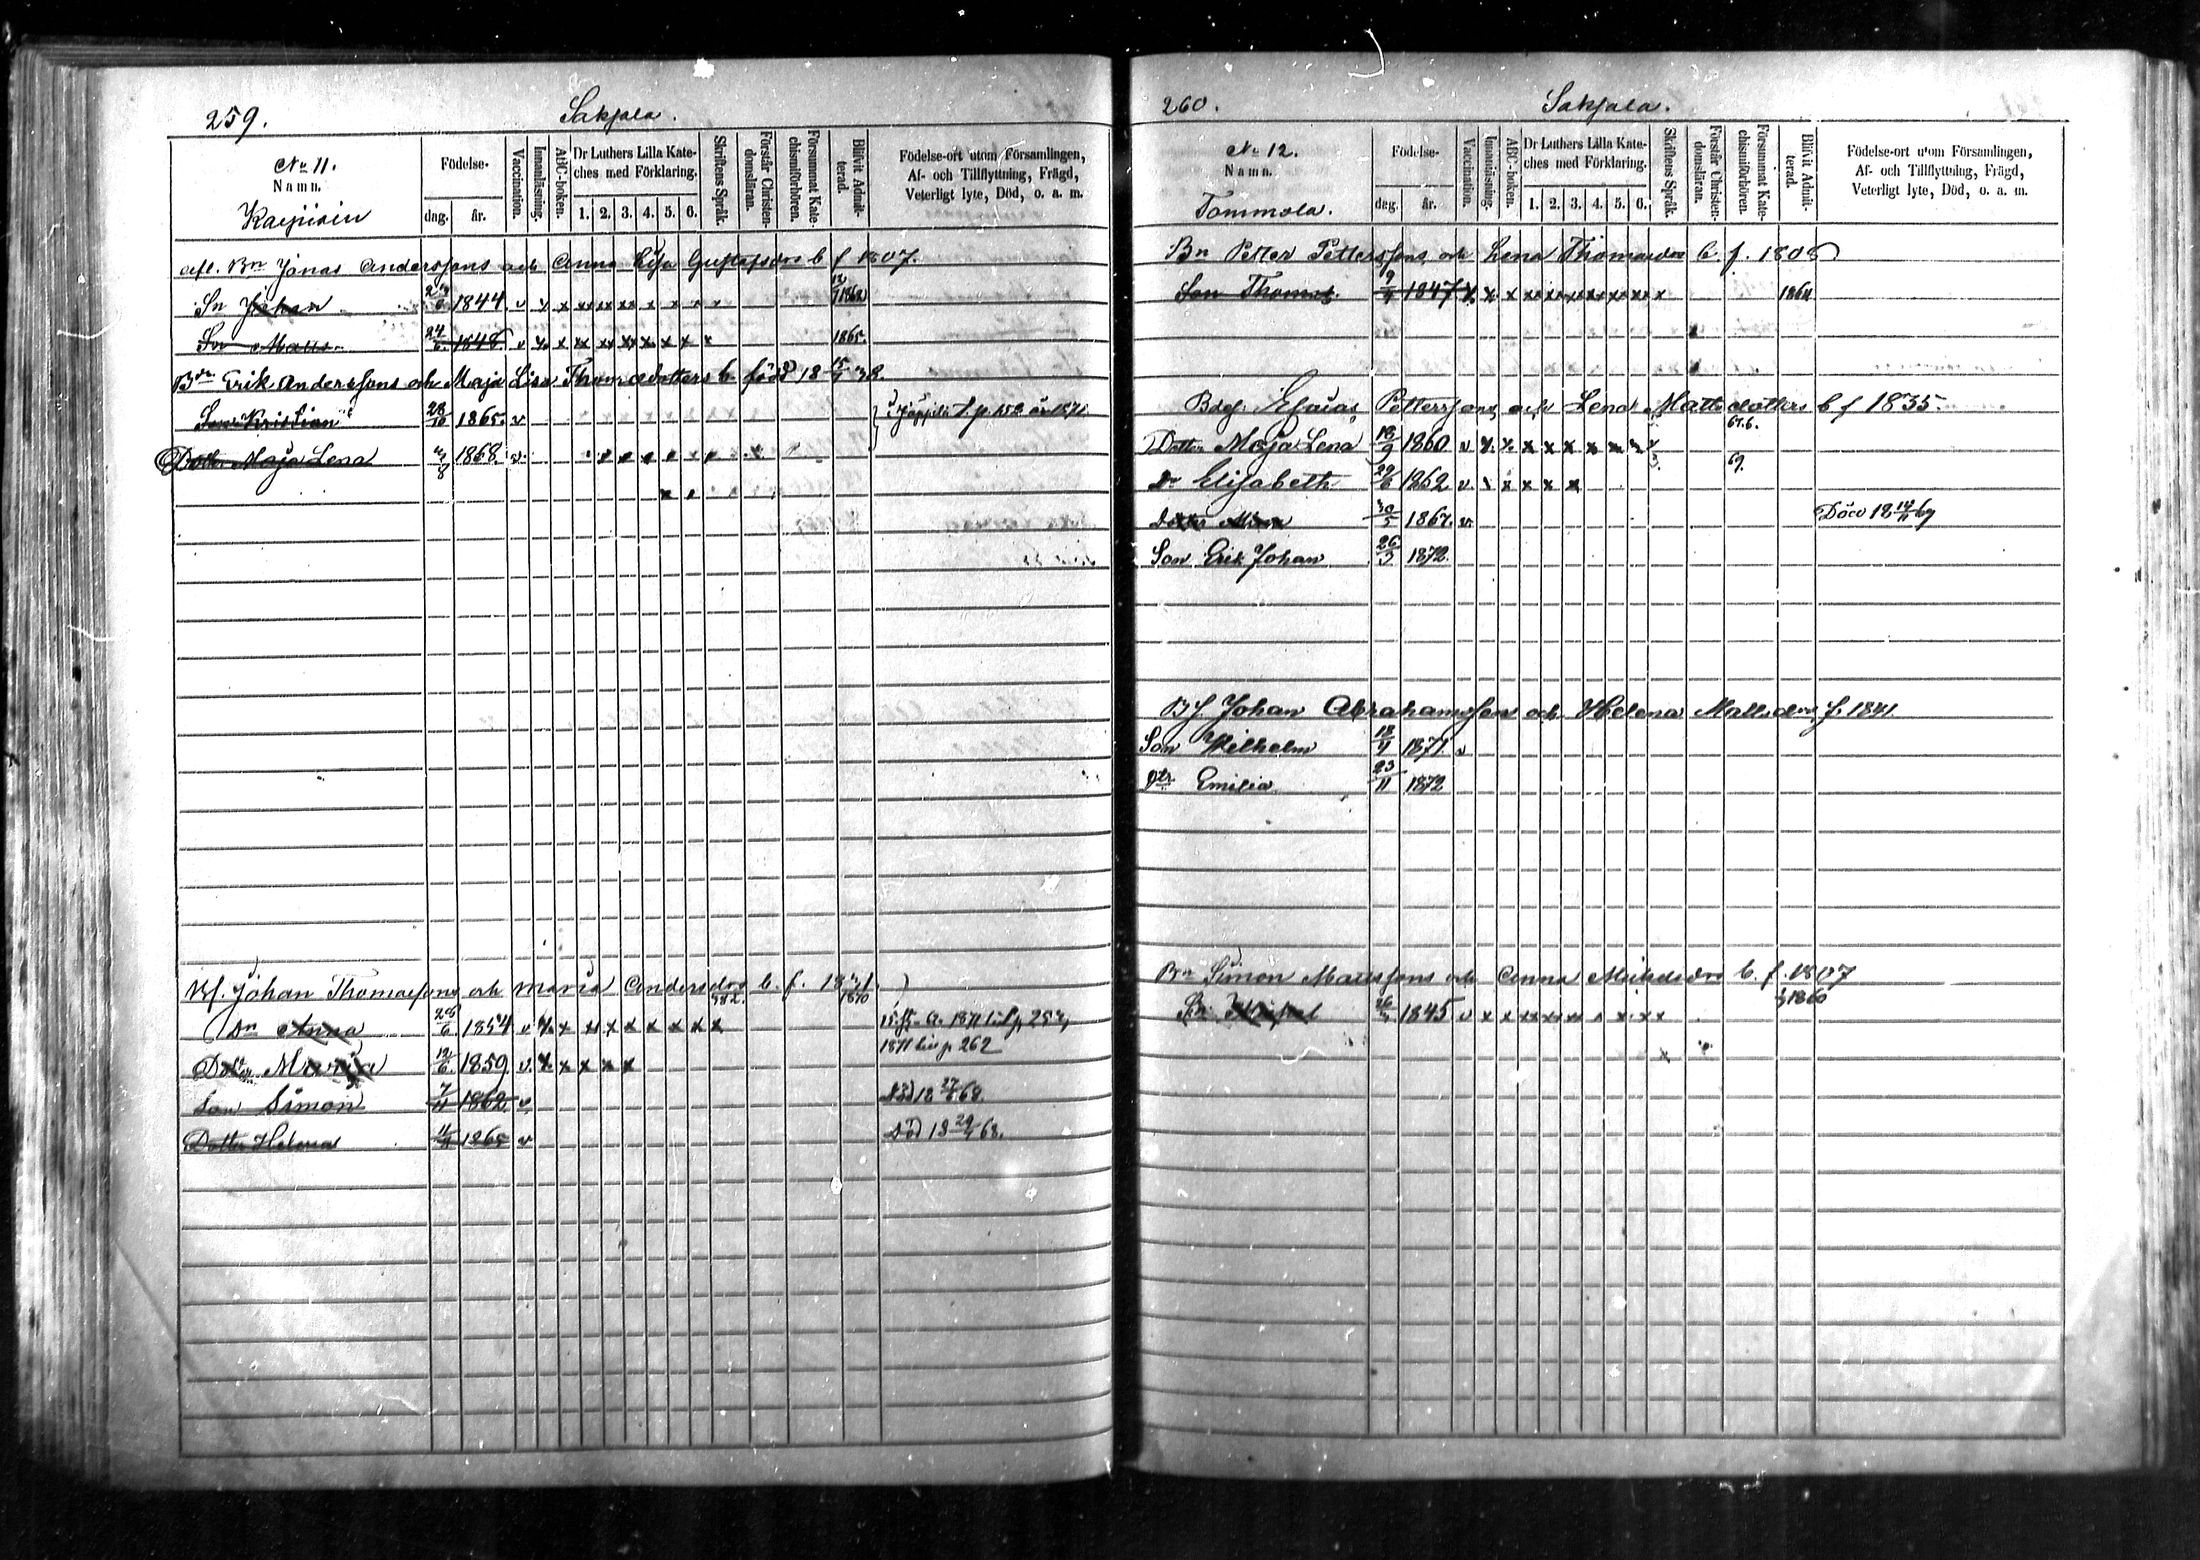 259.
Sakjala.
No 11.
Namn.
Födelse-
dag.
år.
Vaccination.
Innanläsning.
ABC-boken.
Dr Luthers Lilla Kate-
ches med Förklaring.
1. 2. 3. 4. 5. 6.
Skriftens Språk.
Förstår Christen-
domsläran.
Försummat Kate
chismiförhören.
Blifvit Admit-
terad.
Födelse-ort utom Församlingen,
Af- och Tillflyttning, Frägd,
Veterligt lyte, Död, o. a. m.
afl. Bn Jonas Anderssons och Anna Lisa Gustafsdrs b f 1807.
Sn Johan 1844 v x x xx xx xx x x x x 1862
Sn Matts 24/6 1848 v x x xx xx xx x x x x 1865.
Bdn Erik Anderssons och Maja Lisa Thomædotters b. född 18 15/9 32.
Son Kristian 28/10 1865. v
Dotter Maja Lena 1868. v
Bf. Johan Thomassons och Maria Andersdrs b. f. 18
Dr Anna 28/6 1854 v x x xx x x x x x x
1871 liv p 262
Dotr Maria 12/6 1859 v. x x x x x
Son Simon 7/11 1862 v Död 18 68.
Dotter Helena 1865 v Död 18 68.
260.
Sakjala.
No 12.
Namn.
Tommola.
Födelse-
dag.
år.
Vaccination.
Innanläsning.
ABC-boken.
Dr Luthers Lilla Kate-
ches med Förklaring.
1. 2. 3. 4. 5. 6.
Skriftens Språk.
Förstår Christen-
domsläran.
Försummat Kate-
chismiförhören.
Blifvit Admit-
terad.
Födelse-ort utom Församlingen,
Af- och Tillflyttning, Frägd,
Veterligt lyte, Död, o. a. m.
Bn Petter Petterssons och Lena Thomasdrs b. f. 1808
Son Thomas 1847 v. x x xx xx xx xx xx xx x 1864
Esaias Petterssons och Lena Mattsdotters b f 1835.
Dotter Maja Lena 18/9 1860 v x x x x x x x x
Dr Elisabeth 29/6 1862 v x x x x x 69.
Dotter Mina 30/5 1867. v. Död 18 69
Son Erik Johan 26/3 1872.
Bf Johan Abrahamsson och Helena Mattsdrs f. 1841.
Son Wilhelm 18/4 1871. v
Dtr Emilia 23/11 1872
Bn Simon Mattssons och Anna Mickelsdrs b. f. 1807
1860
Sn 1845 v x x xx xx xx x x x x